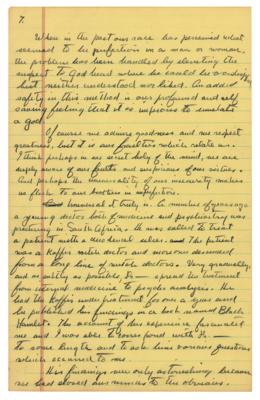 7.
When in the past our race has perceived what
seemed to be perfection in a man or woman,
the problem has been handled by elevating the
suspect to God head where he could be worshiped
but neither understood nor liked. An added
safety in this method is our profound and self
saving feeling that it is impious to emulate
a god.
Of course we admire goodness and we respect
greatness, but it is our frailties which relate us.
I think perhaps in our secret holy of the mind, we are
surely aware of our faults and suspicious of our virtues.
And perhaps the universality of our insecurity makes
us flock to our brothers in imperfection.
Universal it truly is. A number of years ago
a young doctor both of medicine and psychiatry was
practicing in South Africa. He was called to treat
a patient with a duodenal ulcer. The patient
was a Kaffir witch doctor and more over descended
from a long line of witch doctors. Very gradually,
and as subtly as possible, Dr — spread the treatment
from internal medicine to psycho analysis. He
had the Kaffir under treatment for over a year and
he published his findings in a book named Black
Hamlet. The account of his experience fascinated
me and I was able to correspond with Dr. —
to some length and to ask him various questions
which occurred to me.
His findings are only astonishing because
we had closed our minds to the obvious.